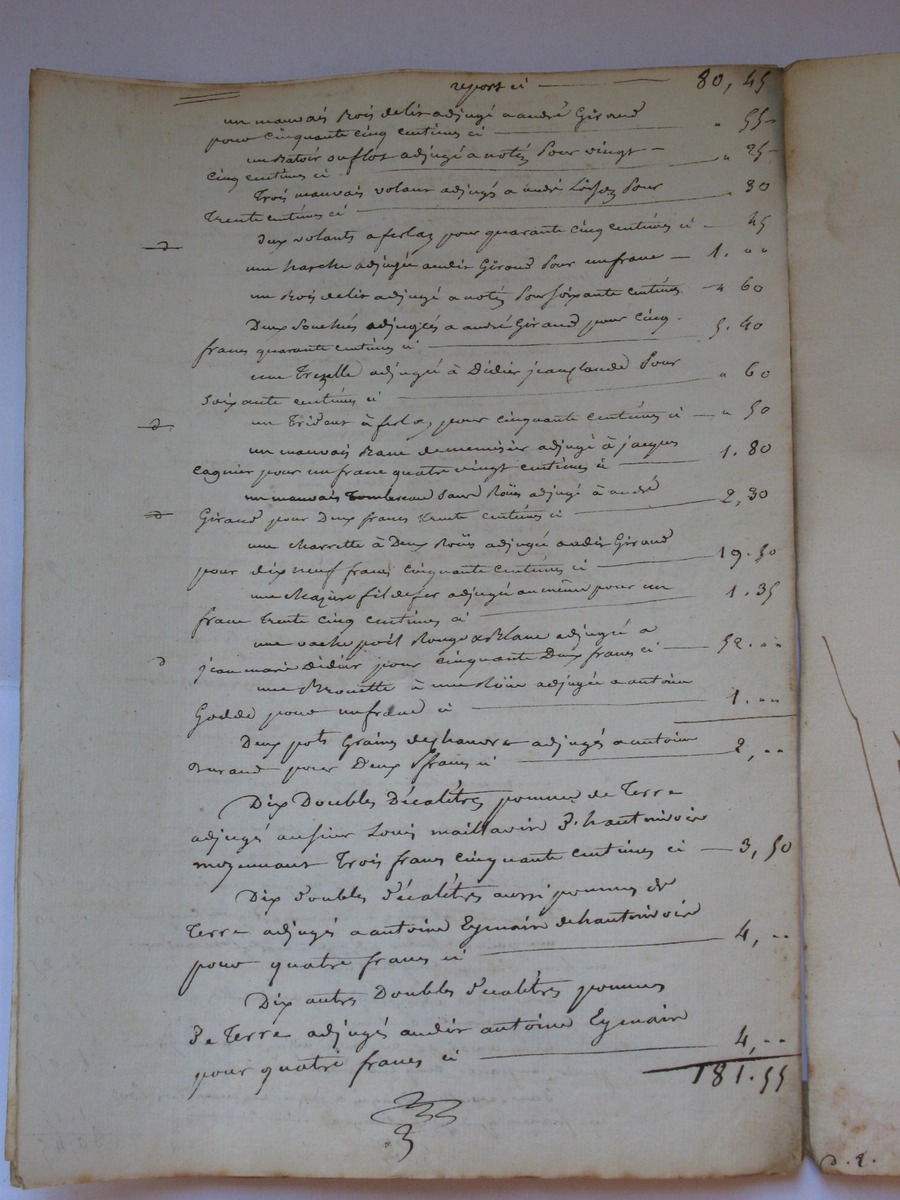 report ci 80,45
un mauvais bois de lit adjugé a andré Giroud
pour cinquante cinq centimes ci " 55
un Batoir ou flot adjugé a notéz pour vingt
cinq centimes ci " 25
Trois mauvais volant adjugés a andré pour
Trente centimes ci . 30
Deux volants a ferlaz pour quarante cinq centimes ci . 45
une hache adjugée audit Giroud pour un franc 1. " "
un bois de lit adjugé a notéz pour soixante centimes " 60
Deux adjugées a andré Giroud pour cinq
francs quarante centimes ci 5.40
une adjugée à Didier jean claude pour
soixante centimes ci " 60
un Trident à ferlaz pour cinquante centimes ci " 50
un mauvais Banc de menuisier adjugé à jacques
cagnier pour un franc quatre vingt centimes ci 1.80
un mauvais Tombereau sans Roües adjugé à andré
Giroud pour Deux francs trente centimes ci 2,30
une charrette à Deux Roües adjugée audit Giroud
pour dix neuf francs cinquante centimes ci 19.50
une fil de fer adjugée au même pour un
franc trente cinq centimes ci 1.35
une vache poil Rouge & Blanc adjugée a
jean marie Didier pour cinquante Deux francs ci 52. " "
une Brouette à une Roüe adjugée a antoine
Godde pour un franc ci 1. " "
Deux pots Grains de chanvre adjugés a antoine
Durand pour Deux francs ci 2, " "
Dix Doubles Décalitres pommes de Terre
adjugés au sieur Louis d'hauterivoire
moyennant Trois francs cinquante centimes ci 3,50
Dix doubles décalitres aussi pommes de
Terre adjugés a antoine Eymain dehauterivoire
pour quatre francs ci 4, " "
Dix autres Doubles décalitres pommes
de Terre adjugés audit antoine Eymain
pour quatre francs ci 4, " "
181.55